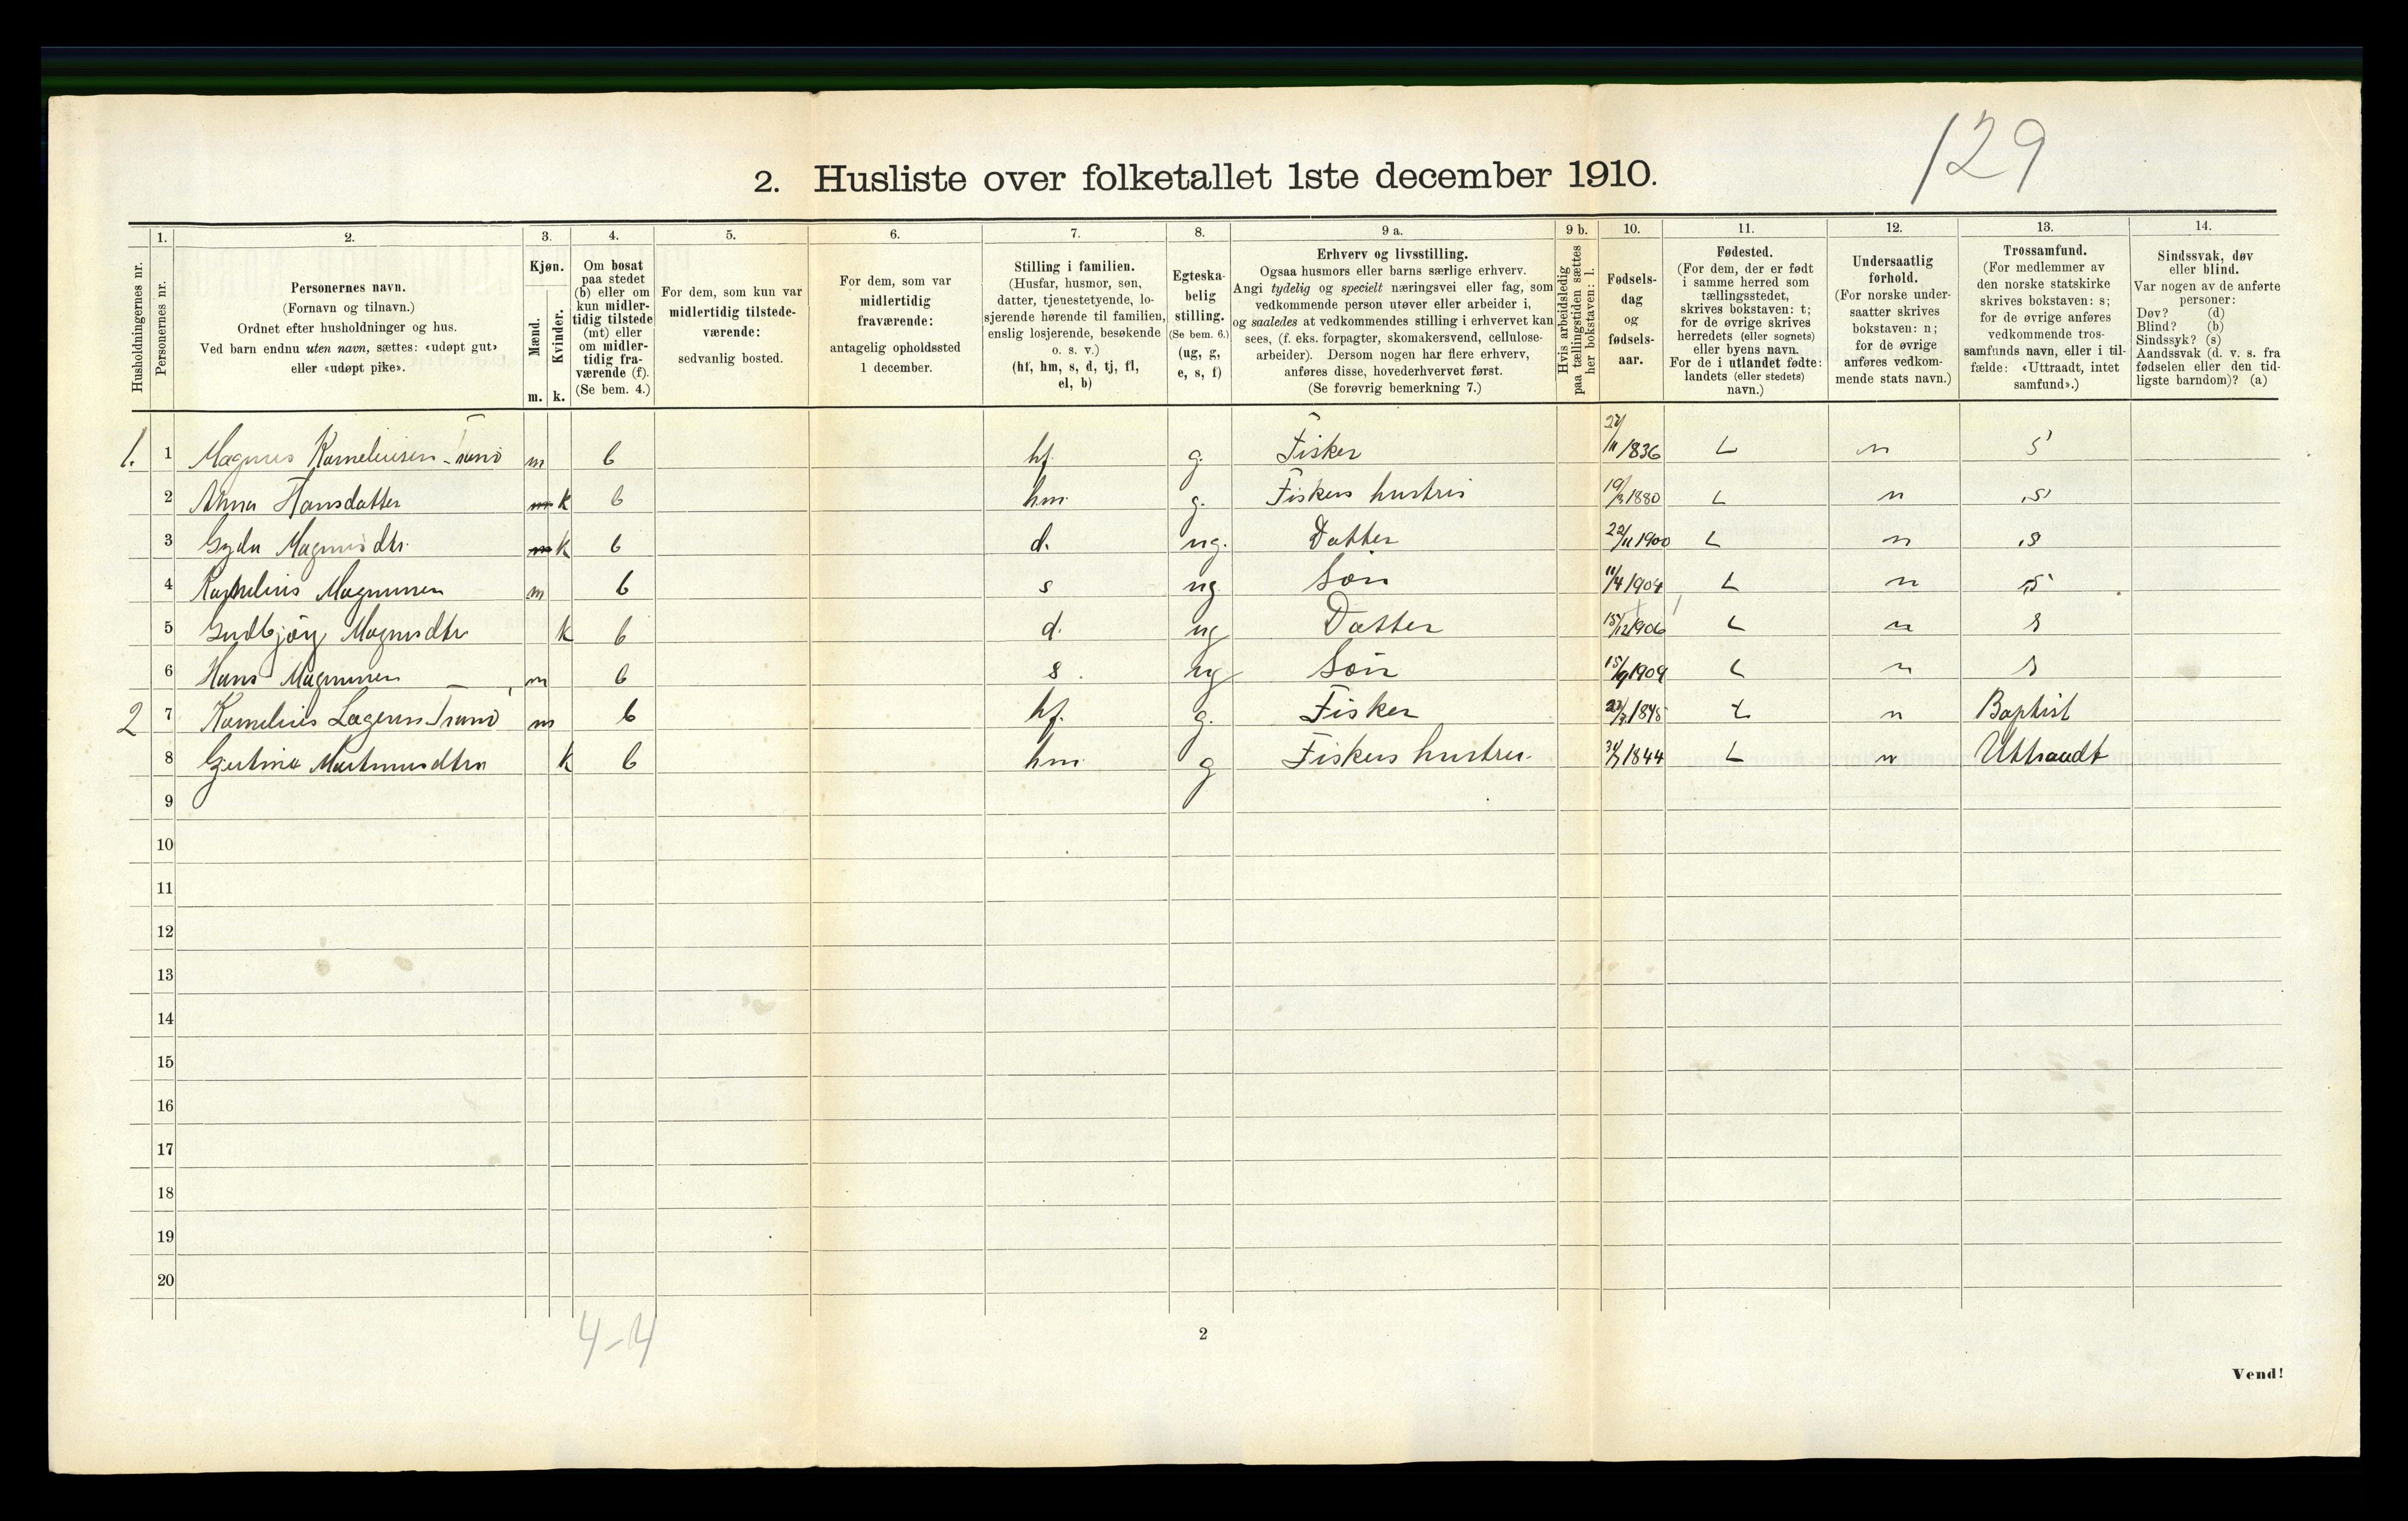 129
2. Husliste over folketallet 1ste december 1910.
Husholdningernes nr.
1.
Personernes nr.
2.
Personernes navn.
(Fornavn og tilnavn.)
Ordnet efter husholdninger og hus.
Ved barn endnu uten navn, sættes: «udøpt gut»
eller «udøpt pike».
3.
Kjøn.
Mænd.
Kvinder.
m. k.
4.
Om bosat
paa stedet
(b) eller om
kun midler-
tidig tilstede
(mt) eller
om midler-
tidig fra-
værende (f).
(Se bem. 4.)
5.
For dem, som kun var
midlertidig tilstede-
værende:
sedvanlig bosted.
6.
For dem, som var
midlertidig
fraværende:
antagelig opholdssted
1 december.
7.
Stilling i familien.
(Husfar, husmor, søn,
datter, tjenestetyende, lo-
sjerende hørende til familien,
enslig losjerende, besøkende
o. s. v.)
(hf, hm, s, d, tj, fl,
el, b)
8.
Egteska-
belig
stilling.
(Se bem. 6.)
(ug, g,
e, s, f)
9 a.
Erhverv og livsstilling.
Ogsaa husmors eller barns særlige erhverv.
Angi tydelig og specielt næringsvei eller fag, som
vedkommende person utøver eller arbeider i,
og saaledes at vedkommendes stilling i erhvervet kan
sees, (f. eks. forpagter, skomakersvend, cellulose-
arbeider). Dersom nogen har flere erhverv,
anføres disse, hovederhvervet først.
(Se forøvrig bemerkning 7.)
9 b.
Hvis arbeidsledig
paa tællingstiden sættes
her bokstaven: l.
10.
Fødsels-
dag
og
fødsels-
aar.
11.
Fødested.
(For dem, der er født
i samme herred som
tællingsstedet,
skrives bokstaven: t;
for de øvrige skrives
herredets (eller sognets)
eller byens navn.
For de i utlandet fødte:
landets (eller stedets)
navn.)
12.
Undersaatlig
forhold.
(For norske under-
saatter skrives
bokstaven: n;
for de øvrige
anføres vedkom-
mende stats navn.)
13.
Trossamfund.
(For medlemmer av
den norske statskirke
skrives bokstaven: s;
for de øvrige anføres
vedkommende tros-
samfunds navn, eller i til-
fælde: «Uttraadt, intet
samfund».)
14.
Sindssvak, døv
eller blind.
Var nogen av de anførte
personer:
Døv? (d)
Blind? (b)
Sindssyk? (s)
Aandssvak (d. v. s. fra
fødselen eller den tid-
ligste barndom)? (a)
1. 1 Magnus Korneliusen m b hf. g. Fisker 1836 t n s
2 Anna Hansdatter m k b hm g. Fiskers hustru 19/3 1880 t n s
3 Gyda Magnusdtr. m k b d. ug. Datter 22/11 1900 t n s
4 Kornelius Magnusen m b s ug. Søn 11/4 1904 t n s
5 Gudbjørg Magnusdtr k b d. ug Datter 15/12 1906 t n s
6 Hans Magnusen m b s. ug Søn 15/9 1909 t n s
2 7 Kornelius m b hf. g. Fisker t n Baptist
8 k b hm g Fiskers hustru 1844 t n Uttraadt
9
10
11
12
13
14
15
16
17
18
19
20
4-4
2
Vend!